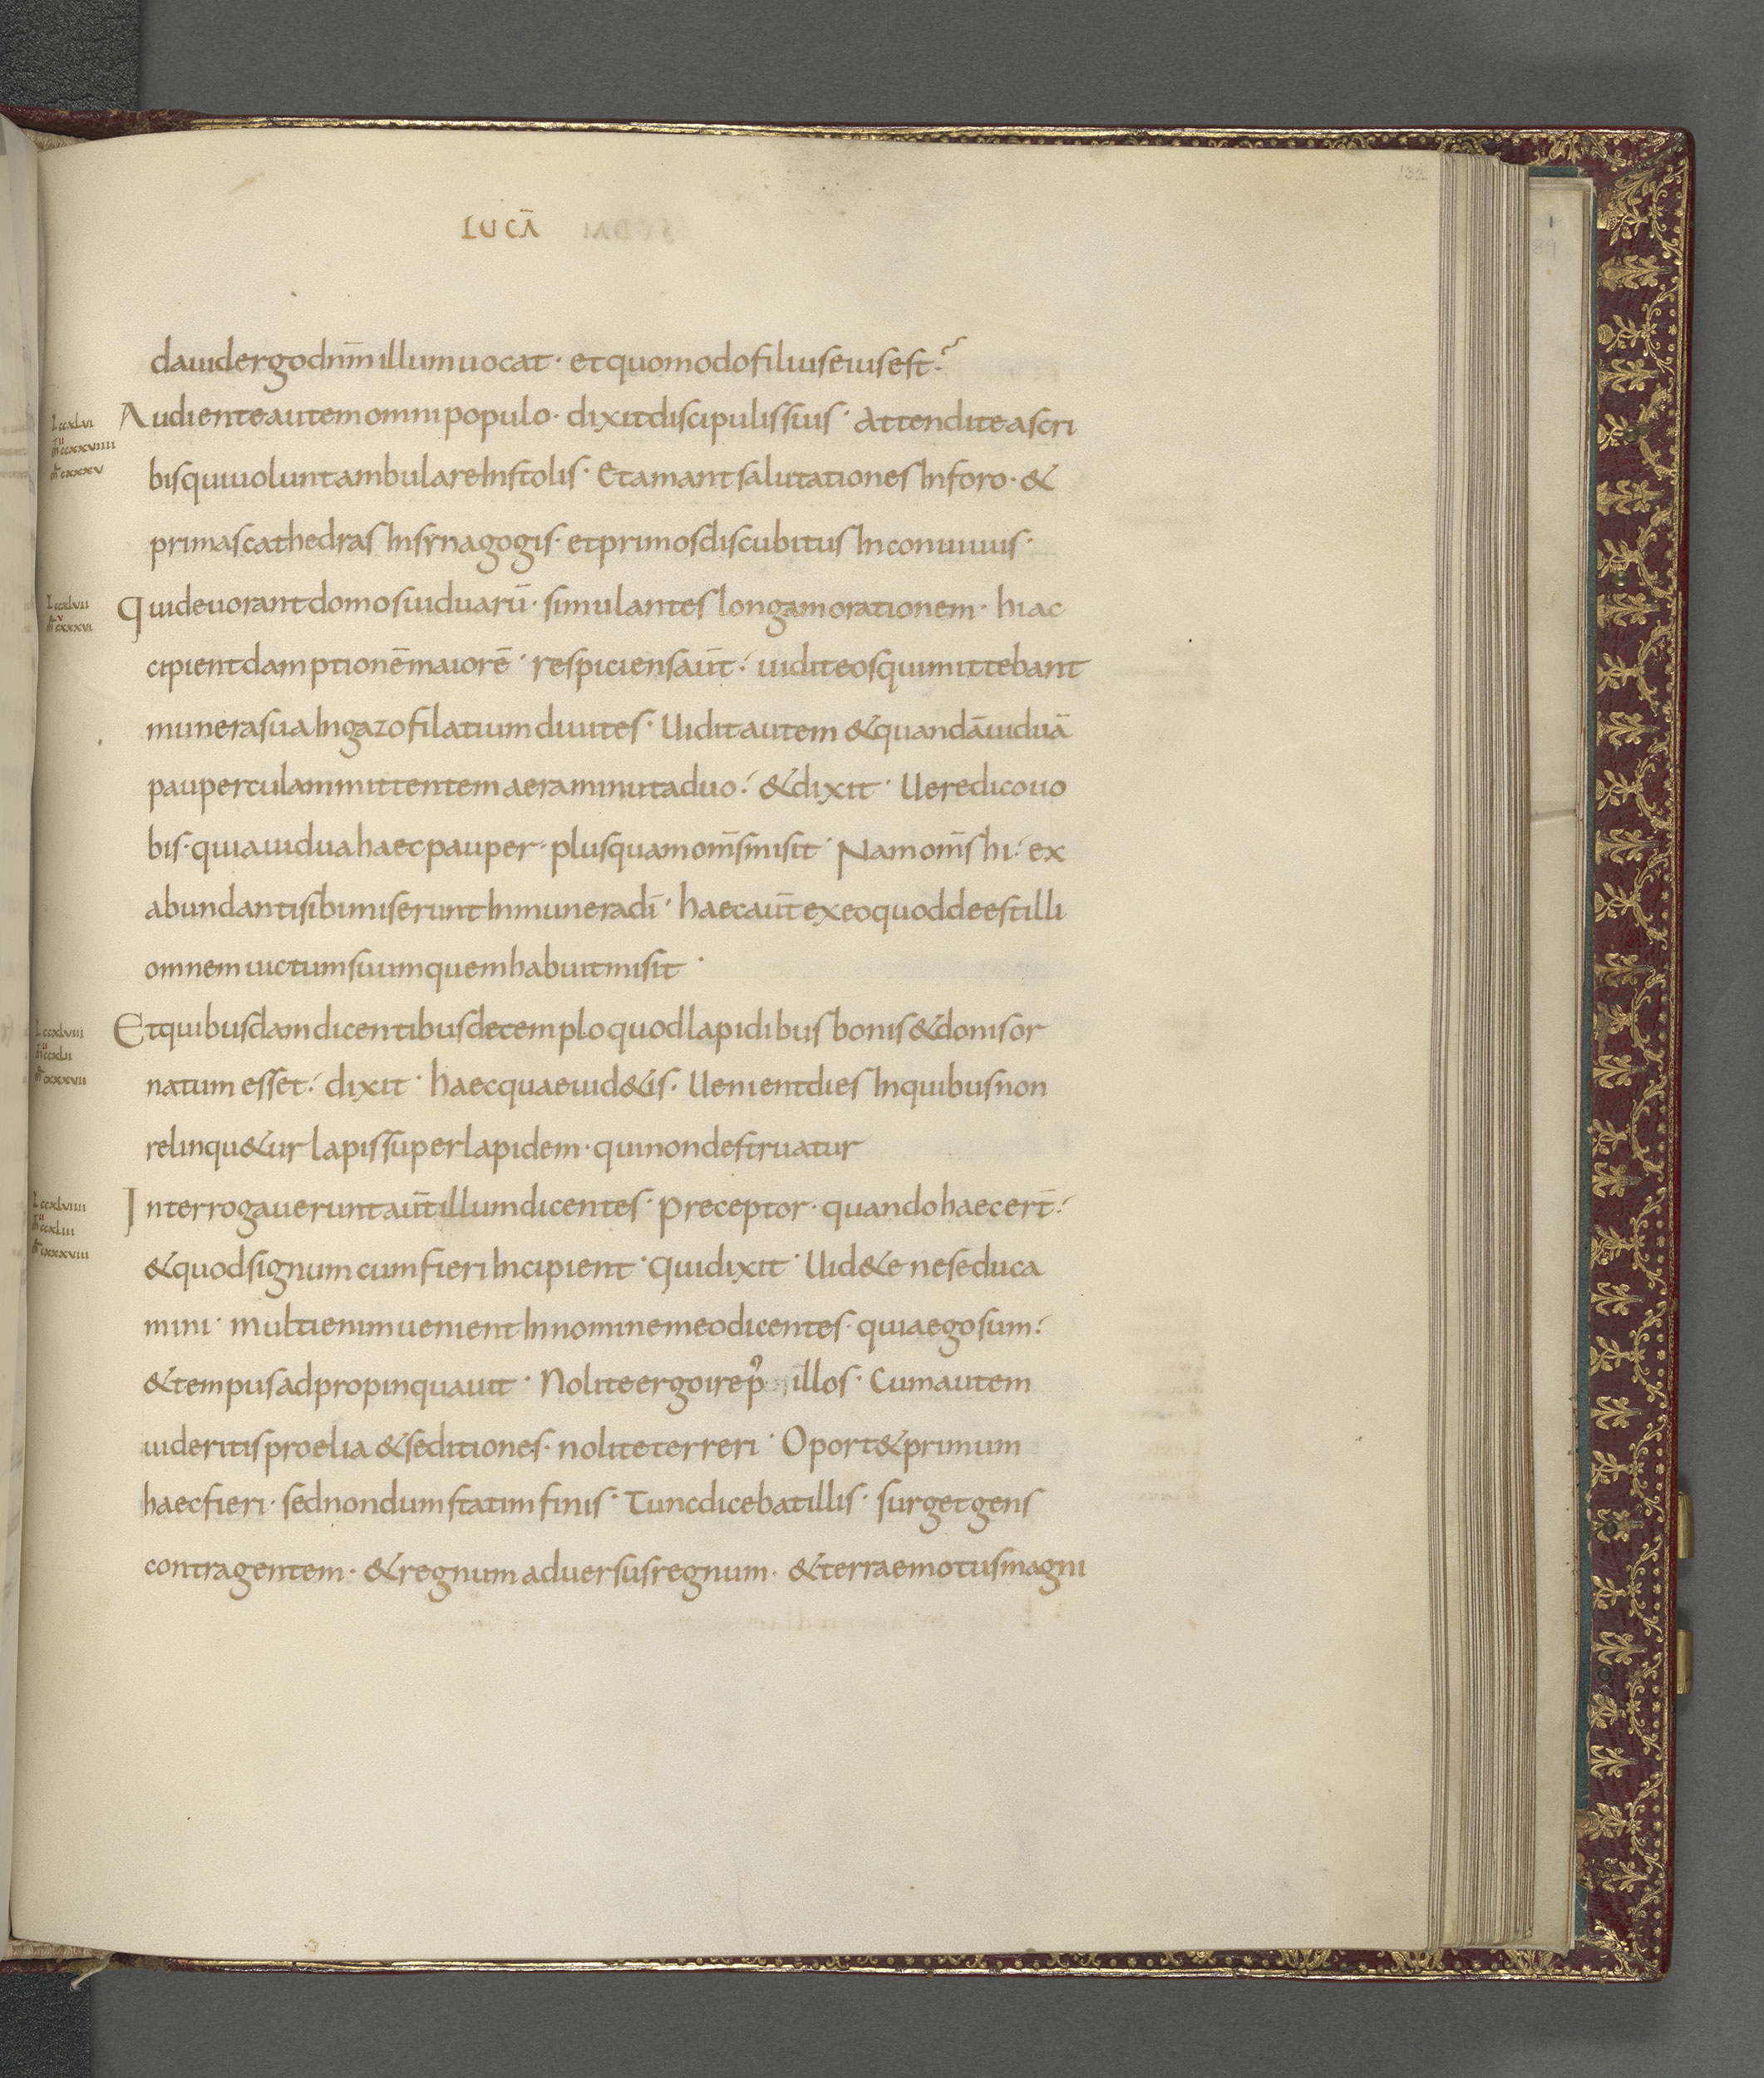 132
LUCĀ
dauidergodnm̄illumuocat· etquomodofiliuseiusest·
Audienteautemomnipopulo· dixitdiscipulissuis· Attenditeascri
bisquiuoluntambulareInstolis· Etamantsalutationes Inforo· &
primascathedras Insynagogis· etprimosdiscubitus Inconuiuiis·
Quideuorantdomosuiduarū· simulantes longamorationem· hiac
cipientdamptionēmaiorē· respiciensaūt· uiditeosquimittebant
munerasuaIngazofilatiumdiuites· Uiditautem &quandāuiduā
pauperculammittentemaeraminutaduo· &dixit· Ueredicouo
bis· quiauiduahaecpauper· plusquamom̄smisit· Namom̄s hi· ex
abundantisibimiseruntInmuneradī· haecaūtexeoquoddeestilli
omnemuictumsuumquemhabuitmisit·
Etquibusdamdicentibusdetemploquodlapidibus bonis&donisor
natumesset· dixit· haecquaeuid&is· Uenientdies Inquibusnon
relinqu&ur lapissuperlapidem· quinondestruatur
Interrogaueruntaūtillumdicentes· preceptor· quandohaecert̄·
&quodsignumcumfieriIncipient· Quidixit· Uid&e neseduca
mini· multienimuenientInnominemeodicentes· quiaegosum·
&tempusadpropinquauit· Noliteergoirep̊ illos· Cumautem
uideritisproelia &seditiones· noliteterreri· Oport&primum
haecfieri· sednondumstatimfinis· Tuncdicebatillis· surgetgens
contragentem· &regnumaduersusregnum· &terraemotusmagni